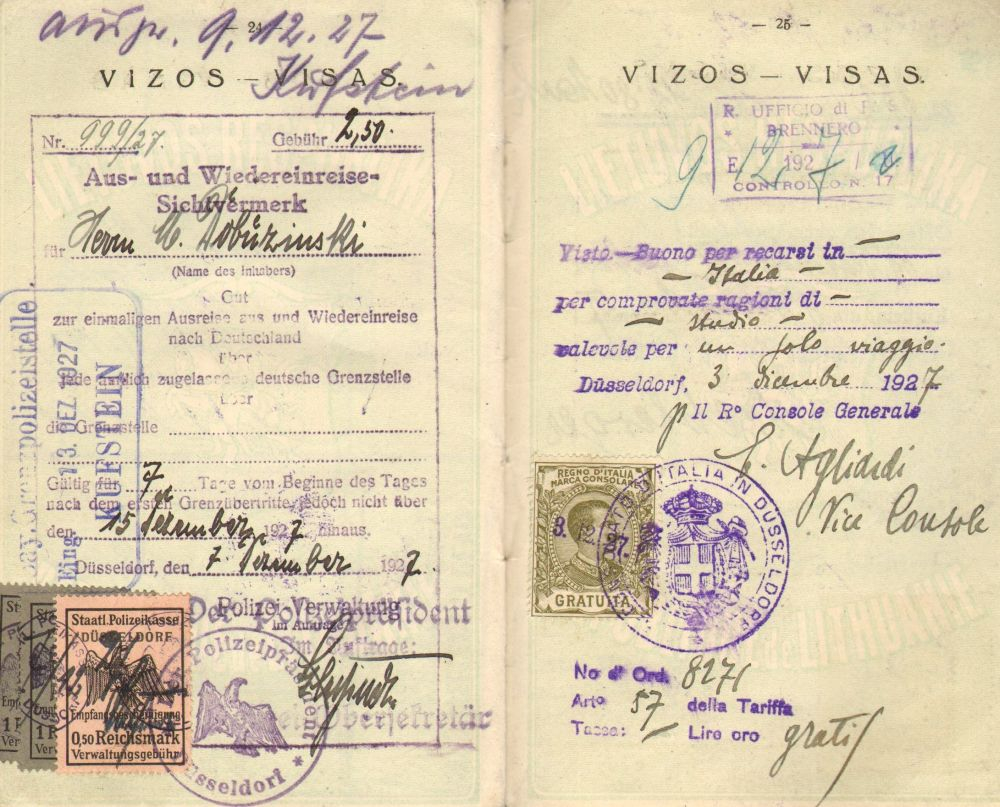 — 24 —
ausger. 9.12.27
Kufstein
VIZOS – VISAS.
Nr. 999/27. Gebühr 2,50.
Aus- und Wiedereinreise-
Sichtvermerk
für Herrn M. Dobužinski
(Name des Inhabers)
Gut
zur einmaligen Ausreise aus und Wiedereinreise
nach Deutschland
über
jede amtlich zugelassene deutsche Grenzstelle
über
die Grenzstelle
Gültig für 7 Tage vom Beginne des Tages
nach dem ersten Grenzübertritte jedoch nicht über
den 15 Dezember 1927 hinaus.
Düsseldorf, den 7. Dezember 1927.
Polizei Verwaltung
Im Auftrage
Der Polizeipräsident
Im Auftrage:
Obersekretär
Polizeipräsident
Düsseldorf *
Bay. Grenzpolizeistelle
Eing. 13. DEZ 1927
KUFSTEIN
Staatl. Polizeikasse
DÜSSELDORF
Empfangsbescheinigung
0,50 Reichsmark
Verwaltungsgebühr
— 25 —
VIZOS – VISAS.
R. UFFICIO di P. S.
* BRENNERO *
E 192
CONTROLLO N. 17
9 12 7
Visto. Buono per recarsi in —
— Italia —
per comprovate ragioni di —
— studio —
valevole per un solo viaggio.
Düsseldorf, 3 dicembre 1927
p Il R° Console Generale
E. Agliardi
Vice Console
REGNO D'ITALIA
MARCA CONSOLARE
3. 12. 27.
GRATUITA
D'ITALIA IN DÜSSELDORF
No d' Ord. 8271
Arto 57 della Tariffa
Tassa: Lire oro gratis